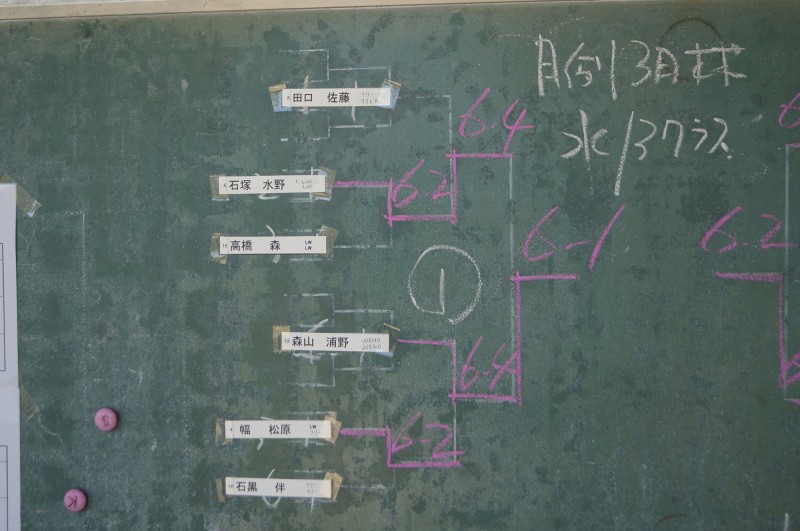 田口 佐藤
6-4
水/3クラス
石塚 水野
6-2
6-2
高橋 森 LW LW
6-1
①
森山 浦野
6-4
幅 松原 LW
6-2
石黒 伴
K